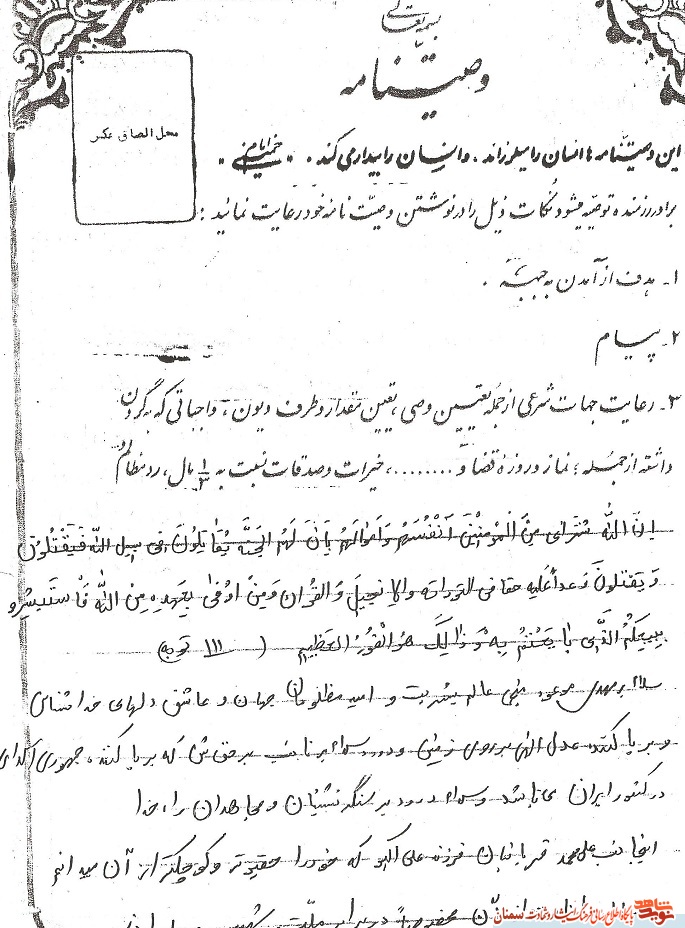 بسمه تعالی
وصیتنامه
محل الصاق عکس
این وصیتنامه ها انسان را میلرزاند. و انسان را بیدار می کند. "امام خمینی"
برادر رزمنده توصیه میشود نکات ذیل را در نوشتن وصیت نامه خود رعایت نمائید:
۱- هدف از آمدن به جبهه.
۲- پیام
۳- رعایت جهات شرعی از جمله تعیین وصی، تعیین مقدار و طرف دیون، واجباتی که بگردن
داشته از جمله: نماز و روزه قضا و ........، خیرات و صدقات نسبت به ۱/۳ مال، رد مظالم
ان الله شترای من المومنین انفسهم و اموالهم بان لهم الجنة یقاتلون فی سبیل الله فیقتلون
و یقتلون وعدا علیه حقا فی التورات والانجیل والقران ومن اوفی بعهده من الله فاستبشرو
ببیعکم الذی بایعتم به وذالک هوالفوز العظیم (۱۱۱ توبه)
سلام بر مهدی موعود منجی عالم بشریت و امید مظلومان جهان و عاشق دلهای خداشناس
و برپا کننده عدل الهی بر روی زمین و درود و سلام بر نائب بر حقش که برپا کننده جمهوری
در کشور ایران می باشد و سلام و درود بر سنگرنشینان و مجاهدان راه خدا
اینجانب علی محمد قربانیان فرزند علی اکبر که خود را حقیرتر و کوچکتر از آن میدانم
نوید شاهد
پایگاه اطلاع رسانی فرهنگ ایثار و شهادت سمنان